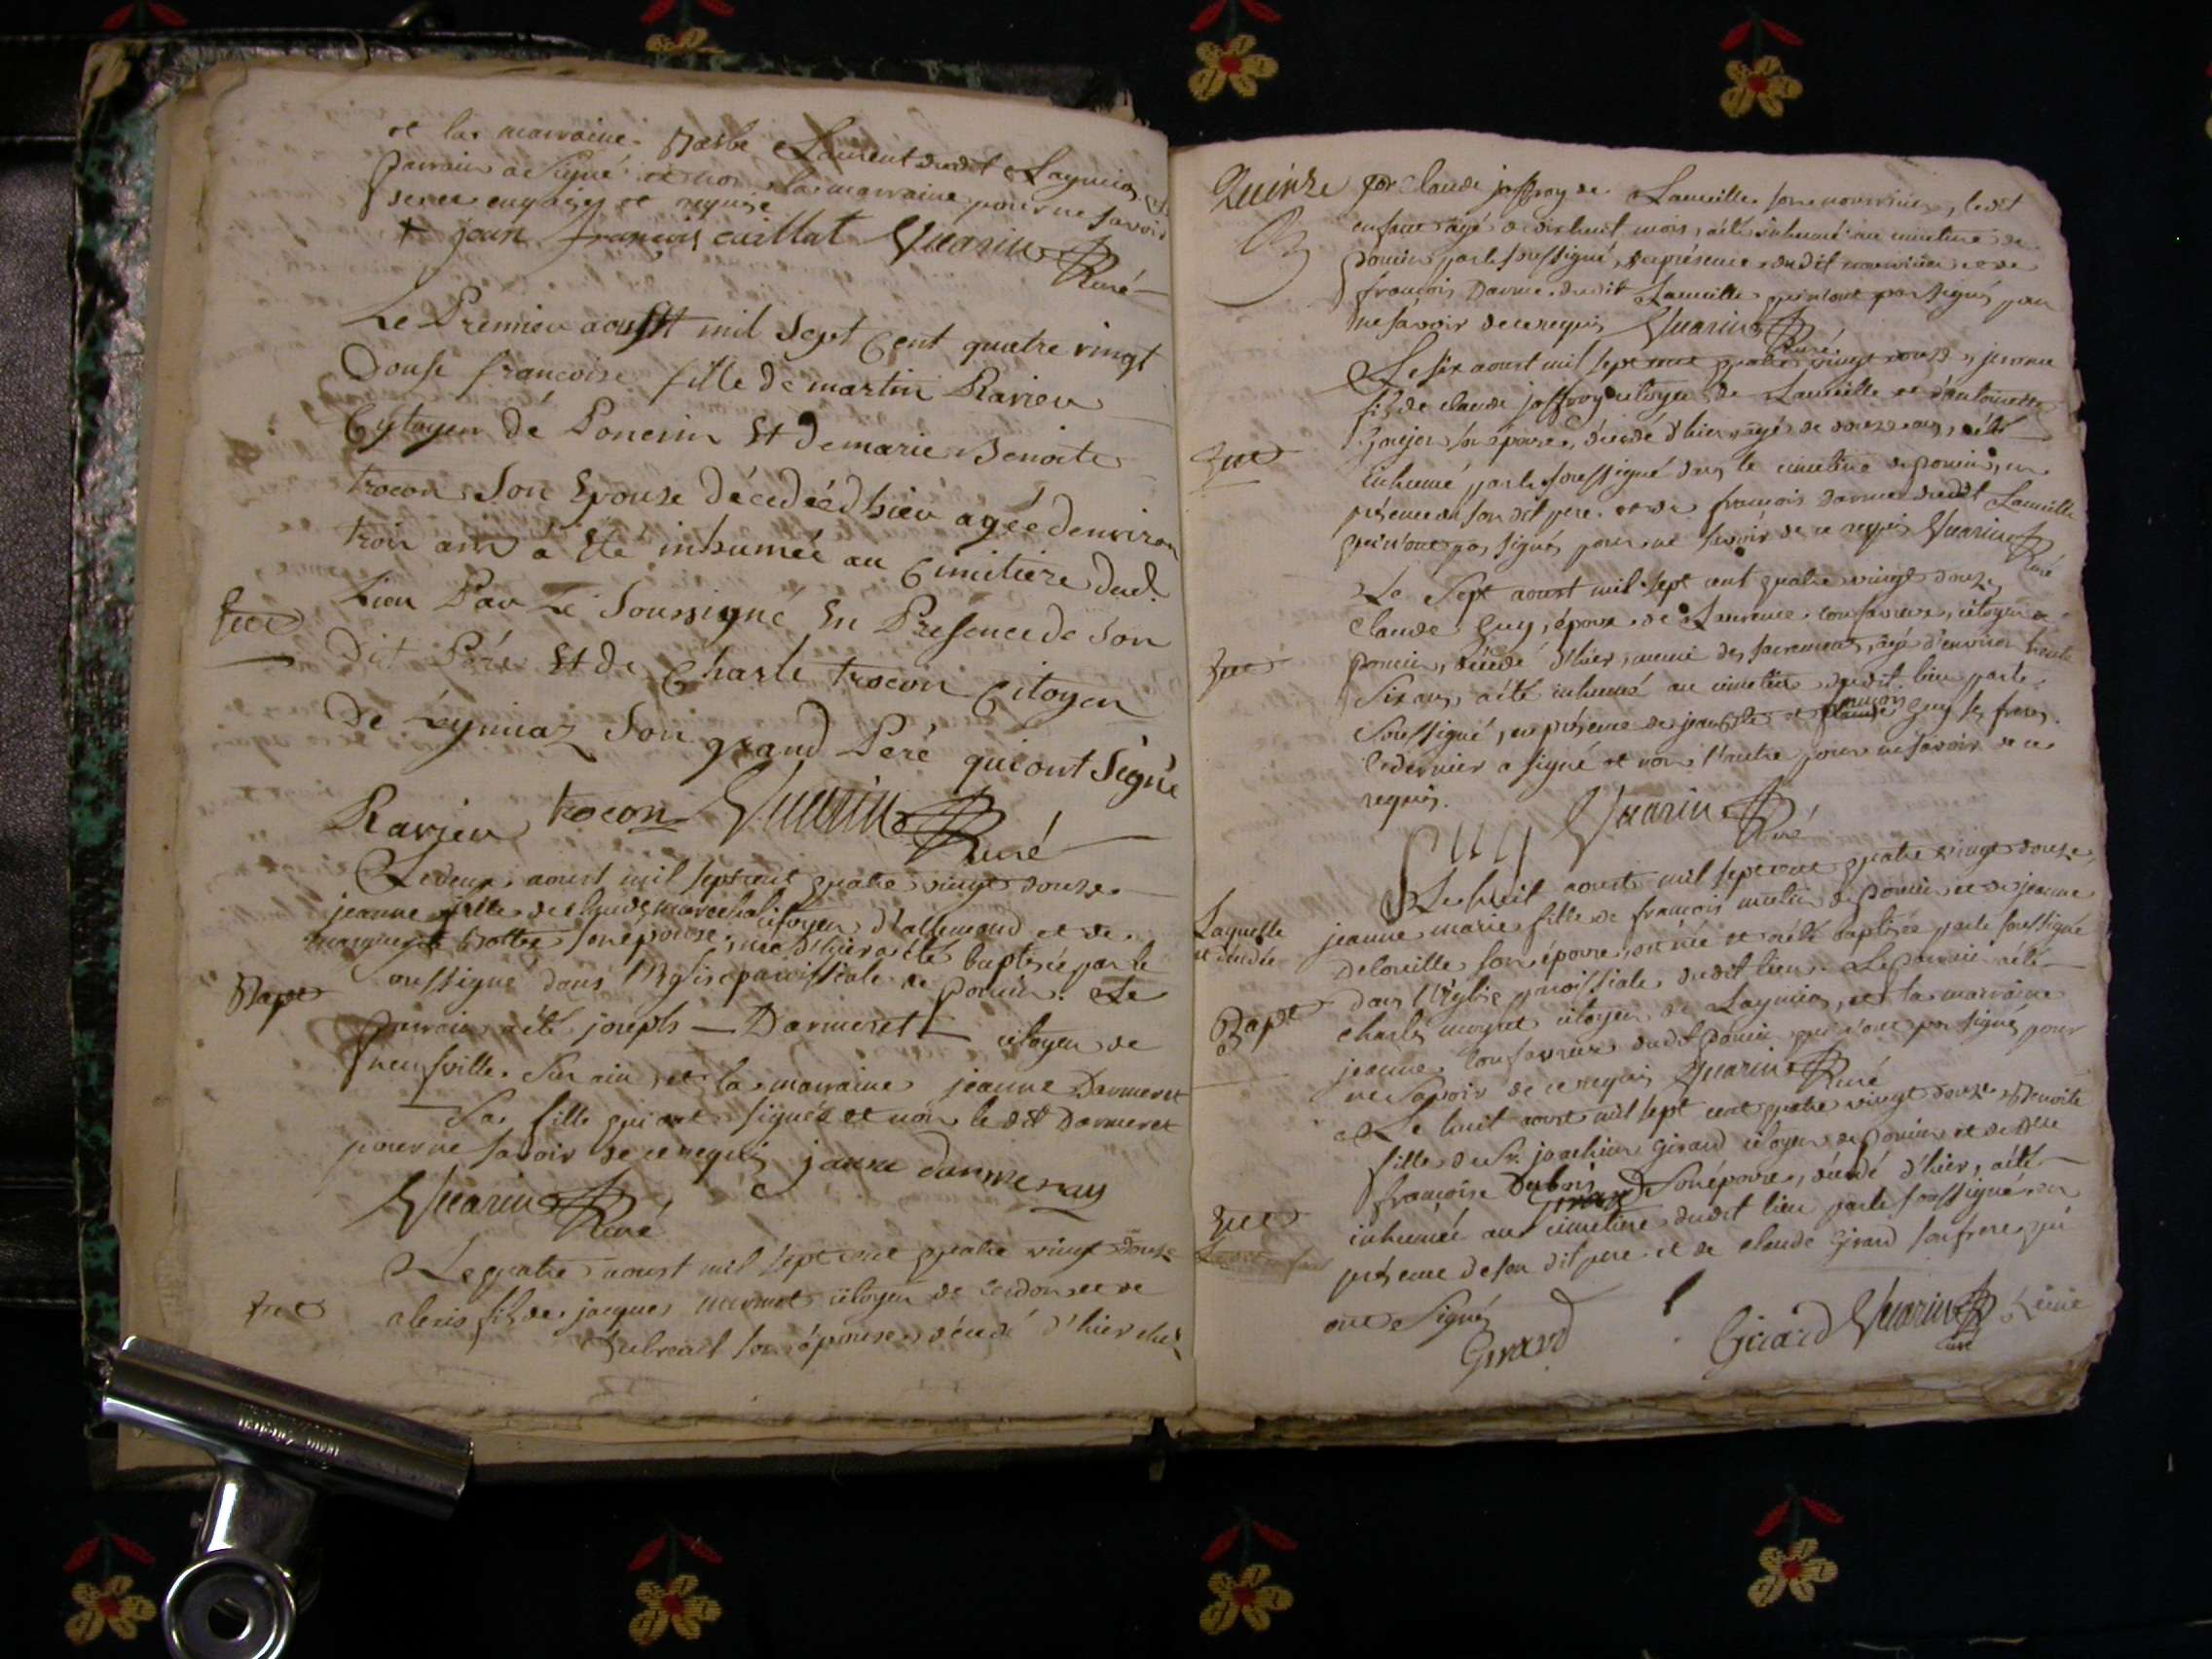 et la marraine Barbe Laurent dudit Laymias, le
parrain a signé et non la marraine pour ne savoir
de ce enquis et requise
+ jean françois caillat Vuarin Curé
Le Premier aoust mil Sept Cent quatre vingt
Douse francoise fille de martin Ravieu
Cytoyen de Poncin Et de marie Benoite
trocon Son Epouse Décedée d'hier agée denviron
trois ans a Eté inhumée au Cimitiere dud.
Sue
Lieu Par Le Soussigné En Presence de Son
Dit Pére Et de Charle trocon Citoyen
De Leymiaz Son grand Peré qui ont Signé
Ravieu trocon Vuarin Curé
Le deux aoust mil sept cent quatre vingt douze
jeanne fille de claude marechal citoyen d'allemend et de
son épouse, née d'hier a été baptisée par le
Bape
soussigné dans l'Eglise paroissiale de Poncin. Le
parrain a été joseph Darmeret citoyen de
neufville sur ain, et la marraine jeanne Darmeret
sa fille qui ont signée et non le dit Darmeret
pour ne savoir de ce requis jeanne
Vuarin Curé
Le quatre aoust mil sept cent quatre vingt douze
Sue
alexis fils de jacques citoyen de et de
son épouse, décédé d'hier chez
Quinze par Claude joffray de Lauville son nourricier, ledit
enfant agé de dixhuit mois, a été inhumé au cimetiere de
Poncin par le soussigné, en présence dudit nourricier et de
françois dudit Lauville qui n'ont pas signés pour
ne savoir de ce requis Vuarin Curé
Le six aoust mil sept cent quatre vingt douze, jerome
fils de claude joffray citoyen de Lauville et d'antoinette
son épouse, décédé d'hier, agé de douze ans, a été
Sue
inhumé par le soussigné dans le cimetiere de Poncin, en
présence de son dit pere et de françois dudit Lauville
qui n'ont pas signés pour ne savoir de ce requis Vuarin Curé
Le Sept aoust mil sept cent quatre vingt douze
Claude Guy, épouse de Laurence citoyen de
Sue
Poncin, décédé d'hier, munie des sacrements, agé d'environ trente
six ans, a été inhumé au cimetiere dudit lieu par le
soussigné, en présence de jean et françois Guy ses freres
le dernier a signé et non l'autre pour ne savoir de ce
requis.
Guy Vuarin Curé
Le huit aoust mil sept cent quatre vingt douze,
Laquelle
est décédée
jeanne marie fille de françois de Poncin et de jeanne
Delouille son épouse, est née et a été baptisée par le soussigné
dans l'Eglise paroissiale dudit lieu. Le parrain a été
Bape
charles citoyen de Laymias, et la marraine
jeanne dudit Poncin qui n'ont pas signés pour
ne savoir de ce requis Vuarin Curé
Le huit aoust mil sept cent quatre vingt douze, Benoite
fille du Sr. joachim Girard citoyen de Poncin et de Dlle
françoise Dubois son épouse, décédé d'hier, a été
Sue
inhumée au cimetiere dudit lieu par le soussigné en
présence de son dit pere et de claude Girard son frere qui
ont Signés
Girard Girard Vuarin Curé